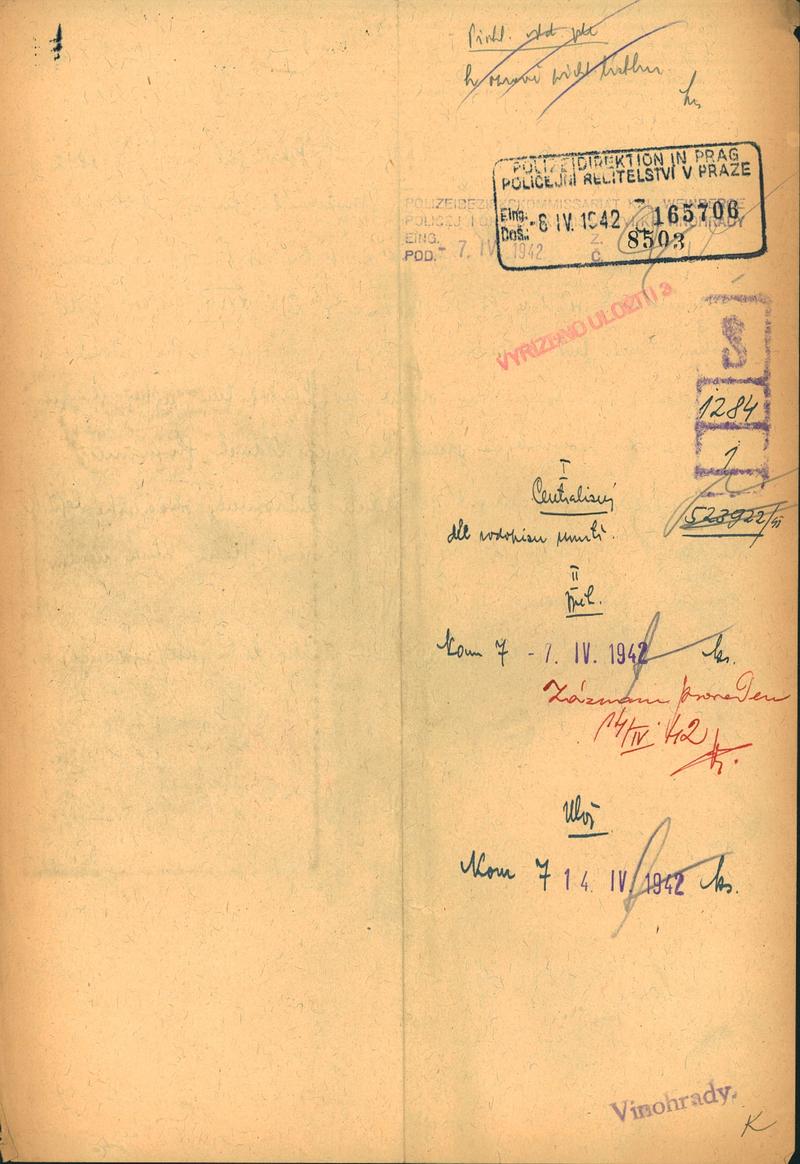 POLIZEIDIREKTION IN PRAG
POLICEJNÍ ŘEDITELSTVÍ V PRAZE
Eing. Došl. - 8 IV. 1942 165706
8503
POLIZEIBEZIRKSKOMMISSARIAT KGL. WEINBERGE
EING.
POD. - 7. IV. 1942 Z. Č.
VYŘÍZENO ULOŽITI 3
S
1284
1
523922/
I
Centralisuj
dle rodopisu
II
Kom 7 - 7. IV. 1942 ks.
Záznam proveden
14/IV. 42
Ulož
Kom 7 14. IV. 1942 ks.
Vinohrady.
K